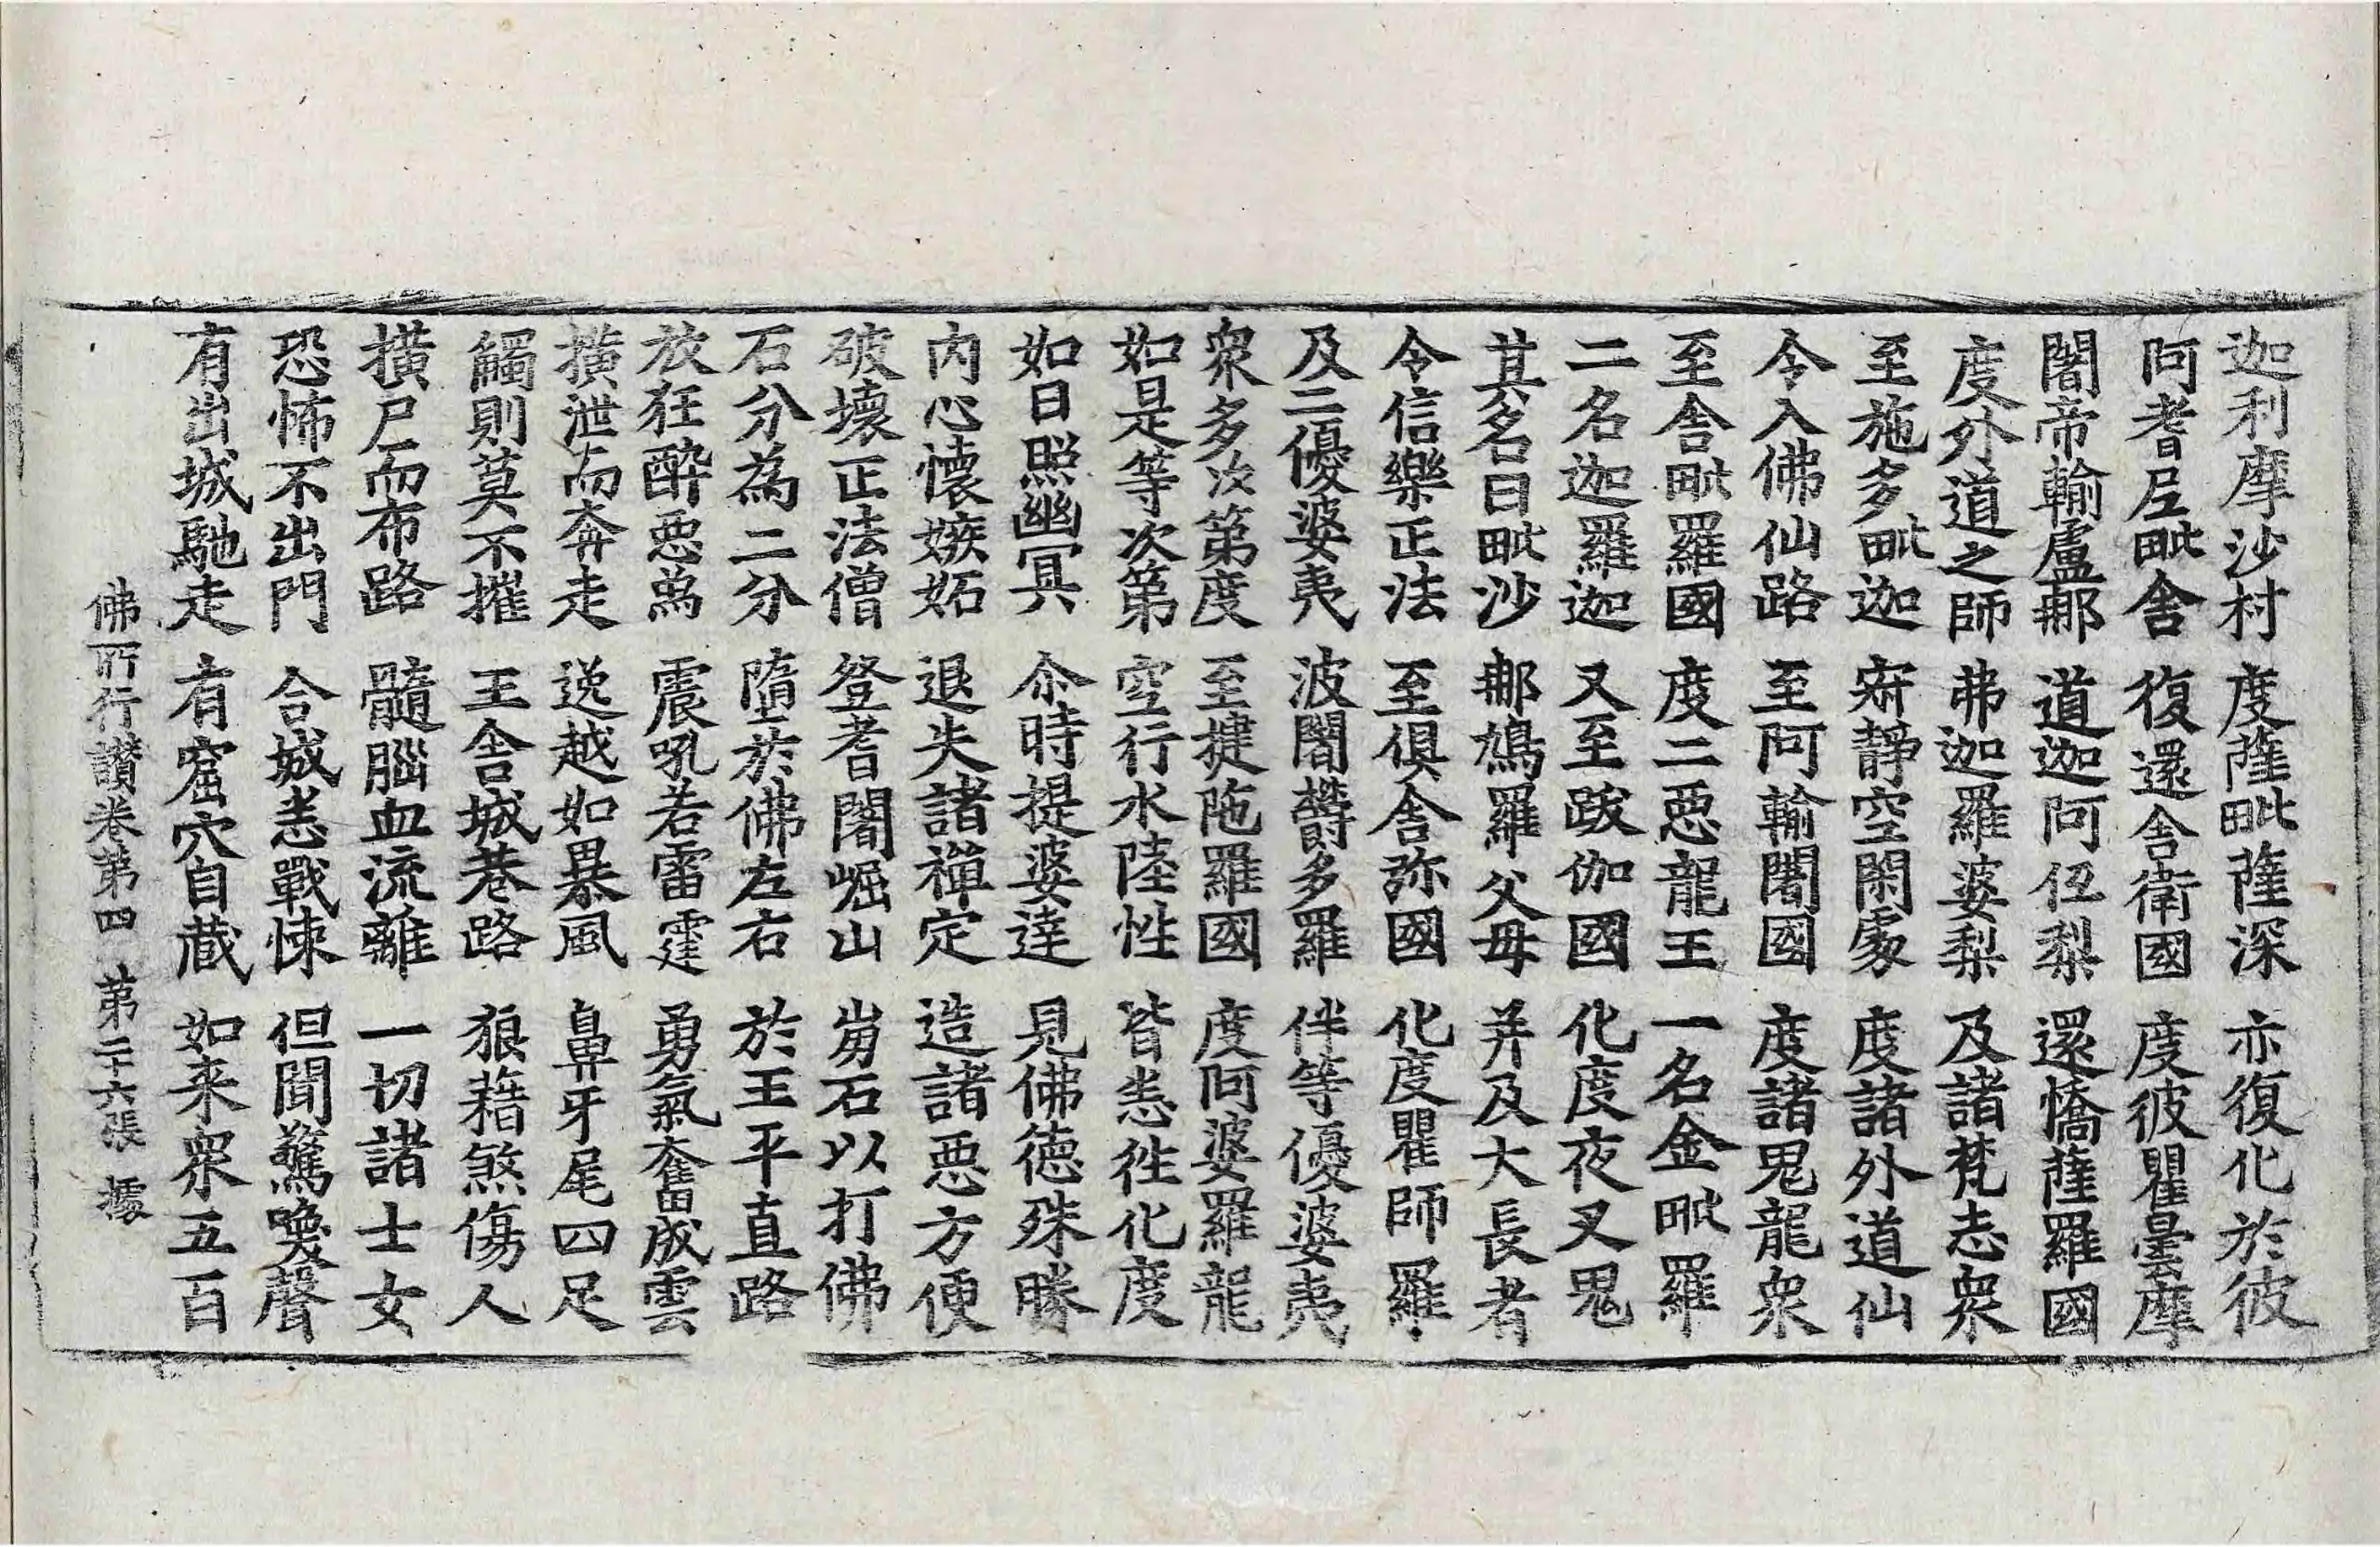 迦利摩沙村 度薩毗薩深 亦復化於彼
阿耆尼毗舍 復還舍衛國 度彼瞿曇摩
闍帝輸盧那 道迦阿伍梨 還憍薩羅國
度外道之師 弗迦羅婆梨 及諸梵志衆
至施多毗迦 寂靜空閑處 度諸外道仙
令入佛仙路 至阿輸闍國 度諸鬼龍衆
至舍毗羅國 度二惡龍王 一名金毗羅
二名迦羅迦 又至跋伽國 化度夜叉鬼
其名曰毗沙 那鳩羅父母 并及大長者
令信樂正法 至俱舍弥國 化度瞿師羅
及二優婆夷 波闍欝多羅 伴等優婆夷
衆多次第度 至揵陁羅國 度阿婆羅龍
如是等次第 空行水陸性 皆悉往化度
如日照幽冥 尒時提婆達 見佛德殊勝
內心懷嫉妬 退失諸禪定 造諸惡方便
破壞正法僧 登耆闍崛山 崩石以打佛
石分為二分 墮於佛左右 於王平直路
放狂醉惡象 震吼若雷霆 勇氣奮成雲
橫泄而奔走 逸越如暴風 鼻牙尾四足
觸則莫不摧 王舍城巷路 狼藉煞傷人
橫尸而布路 髓腦血流離 一切諸士女
恐怖不出門 合城悉戰悚 但聞驚喚聲
有出城馳走 有窟穴自藏 如来衆五百
佛所行讚卷第四 第二十六張 據